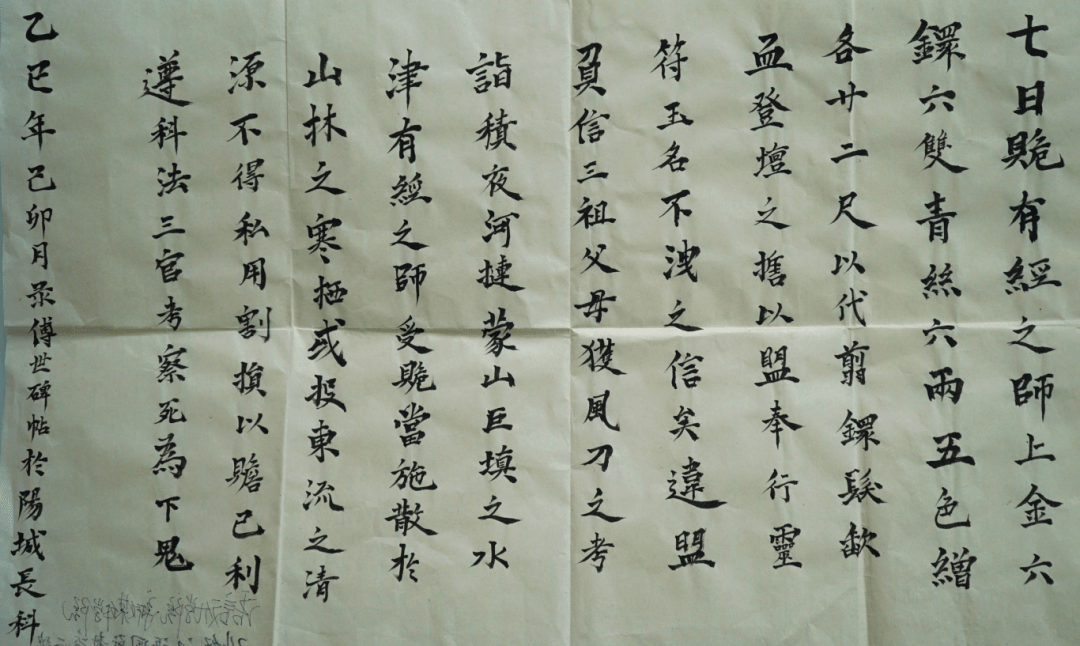 七日贶有經之師上金六
鐶六雙青絲六兩五色繒
各廿二尺以代翦鐶髮歃
血登壇之擔以盟奉行靈
符玉名不洩之信矣違盟
負信三祖父母獲風刀之考
詣積夜河揵蒙山巨填之水
津有經之師受贶當施散於
山林之寒栖或投東流之清
源不得私用割損以贍己利
遵科法三官考察死為下鬼
乙巳年己卯月录傅世碑帖於陽城長科